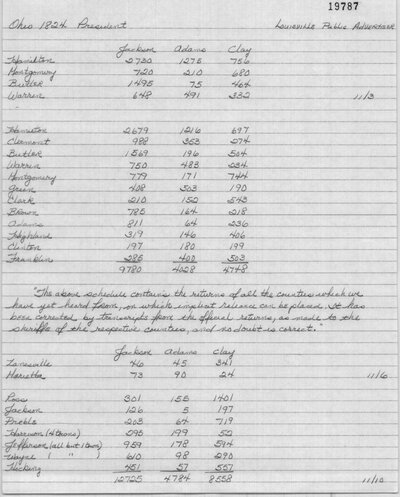 19787
Ohio 1824 President Louisville Public Advertiser
Jackson Adams Clay
Hamilton 2730 1275 756
Montgomery 720 210 680
Butler 1495 75 464
Warren 648 491 332 11/3
Hamilton 2679 1216 697
Clermont 988 353 274
Butler 1569 196 504
Warren 750 483 234
Montgomery 779 171 744
Green 408 303 190
Clark 210 152 543
Brown 785 164 218
Adams 811 64 236
Highland 319 146 406
Clinton 197 180 199
Franklin 285 400 503
9780 4028 4748
"The above schedule contains the returns of all the counties which we
have yet heard from, on which implicit reliance can be placed. It has
been corrected by transcripts from the official returns, as made to the
sheriffs of the respective counties, and no doubt is correct."
Jackson Adams Clay
Zanesville 46 45 341
Marietta 73 90 24 11/6
Ross 301 155 1401
Jackson 126 5 197
Preble 203 64 719
Harrison (4 towns) 295 199 52
Jefferson (all but 1 town) 959 178 594
Wayne ( " " ) 610 98 290
Hocking 451 57 557
12725 4784 8558 11/10